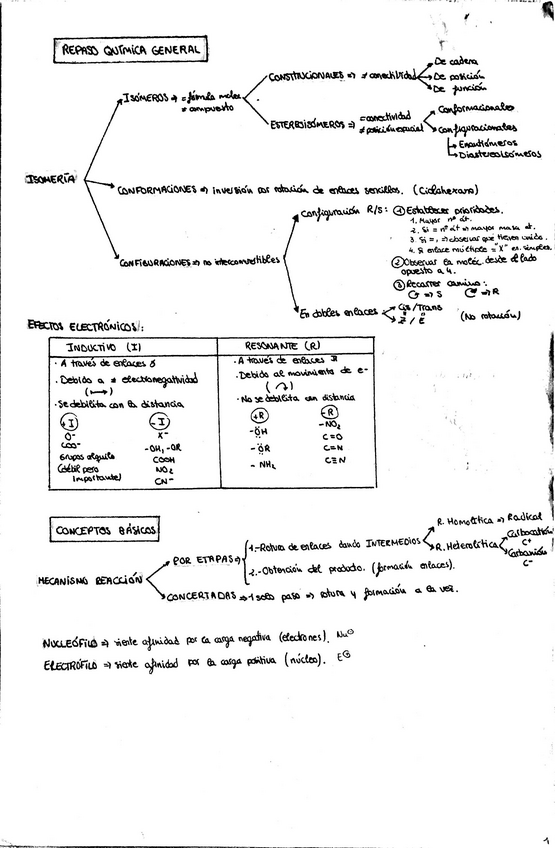 REPASO QUÍMICA GENERAL
ISOMERÍA
ISÓMEROS ⇒ = fórmula molec
≠ compuesto
CONSTITUCIONALES ⇒ ≠ conectividad
De cadena
De posición
De función
ESTEREOISÓMEROS ⇒ = conectividad
≠ posición espacial
Conformacionales
Configuracionales
Enantiómeros
Diastereoisómeros
CONFORMACIONES ⇒ inversión por rotación de enlaces sencillos. (Ciclohexano)
CONFIGURACIONES ⇒ no interconvertibles
Configuración R/S: ① Establecer prioridades.
1. Mayor nº at.
2. Si = nº at ⇒ mayor masa at.
3. Si =, ⇒ observar que tienen unido.
4. Si enlace múltiple = "X" en. simples.
② Observar la moléc. desde el lado
opuesto a 4.
③ Recorrer camino:
⇒ S ⇒ R
En dobles enlaces
Cis/Trans
Z / E
(No rotación)
EFECTOS ELECTRÓNICOS:
INDUCTIVO (I)
· A través de enlaces σ
· Debido a ≠ electronegatividad
(↦)
· Se debilita con la distancia
+I -I
O⁻ X⁻
COO⁻ -OH, -OR
Grupos alquilo COOH
(débil pero NO₂
importante) CN⁻
RESONANTE (R)
· A través de enlaces π
· Debido al movimiento de e-
· No se debilita con distancia
+R -R
-ÖH -NO₂
C=O
-ÖR C=N
-NH₂ C≡N
CONCEPTOS BÁSICOS
MECANISMO REACCIÓN
POR ETAPAS ⇒
1.- Rotura de enlaces dando INTERMEDIOS
R. Homolítica ⇒ Radical
R. Heterolítica
Carbocatión
C⁺
Carbanión
C⁻
2.- Obtención del producto. (formación enlaces).
CONCERTADAS ⇒ 1 solo paso ⇒ rotura y formación a la vez.
NUCLEÓFILO ⇒ siente afinidad por la carga negativa (electrones). Nu⊖
ELECTRÓFILO ⇒ siente afinidad por la carga positiva (núcleo). E⊕
1